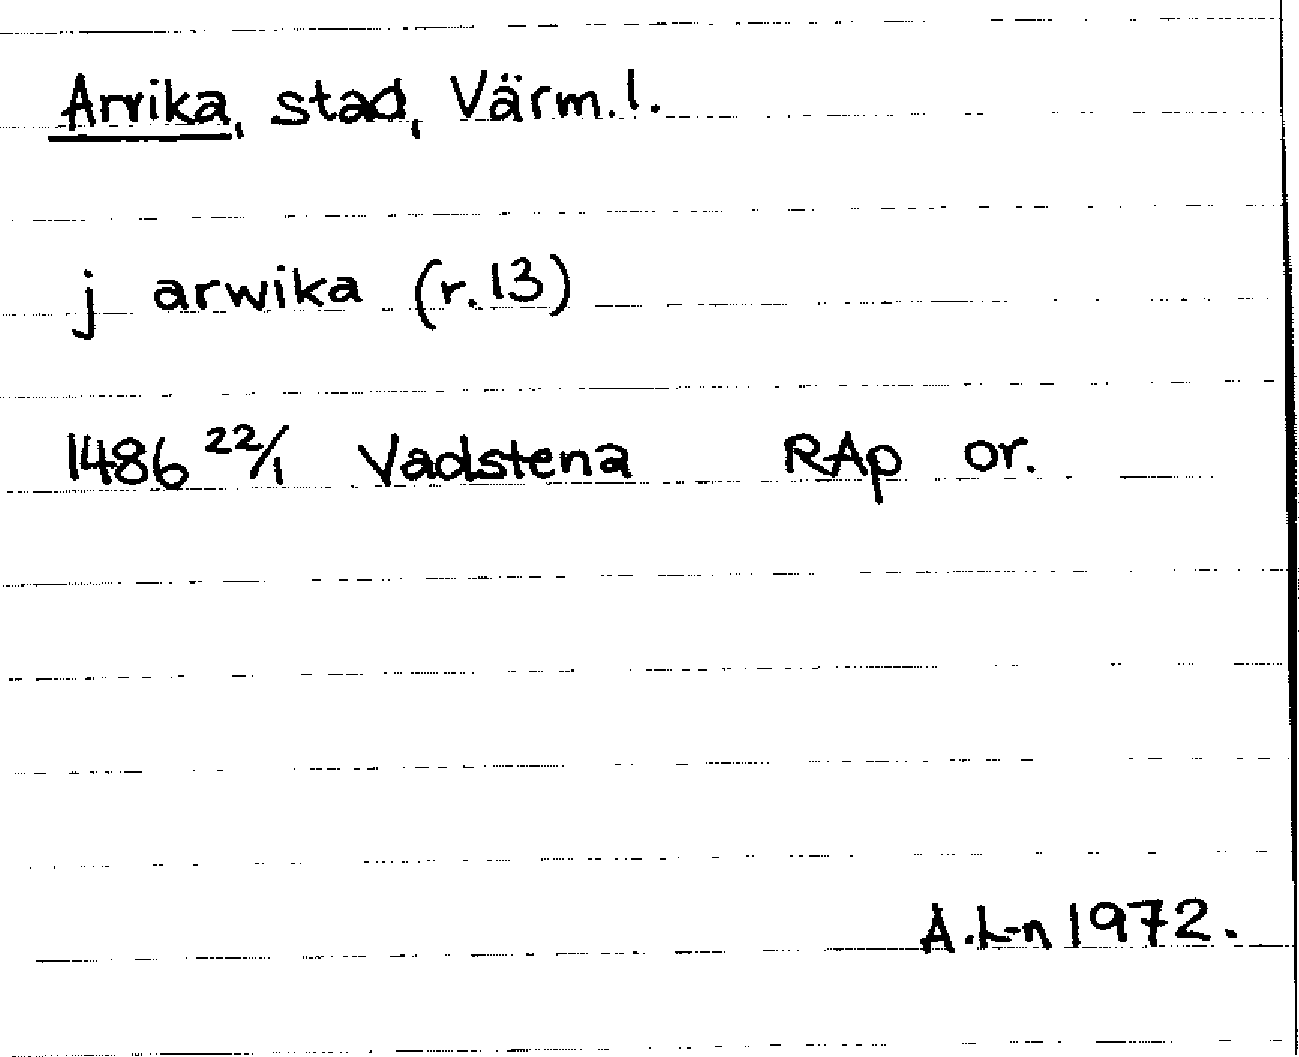 Arvika, stad, Värm. l.
j arwika (r. 13)
1486 22/1 Vadstena RAp or.
A. L-n 1972.